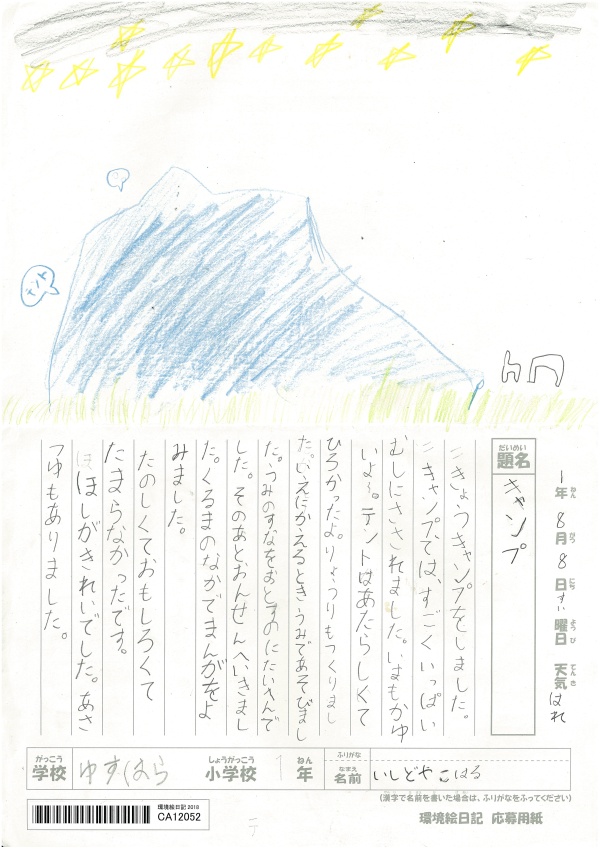 1年8月8日すい曜日 天気はれ
ねん がつ にち ようび てんき
だいめい
題名
キャンプ
きょうキャンプをしました。
キャンプでは、すごくいっぱい
むしにさされました。いまもかゆ
いよ〜。テントはあたらしくて
ひろかったよ。りょうりもつくりまし
た。いえにかえるときうみであそびまし
た。うみのすなをおとすのにたいへんで
した。そのあとおんせんへいきまし
た。くるまのなかでまんがをよ
みました。
たのしくておもしろくて
たまらなかったです。
ほしがきれいでした。あさ
つゆもありました。
がっこう しょうがっこう ねん
学校 ゆすはら 小学校 1年
ふりがな
なまえ
名前 いしどやこはる
(漢字で名前を書いた場合は、ふりがなをふってください)
環境絵日記 2019
CA12052
環境絵日記 応募用紙